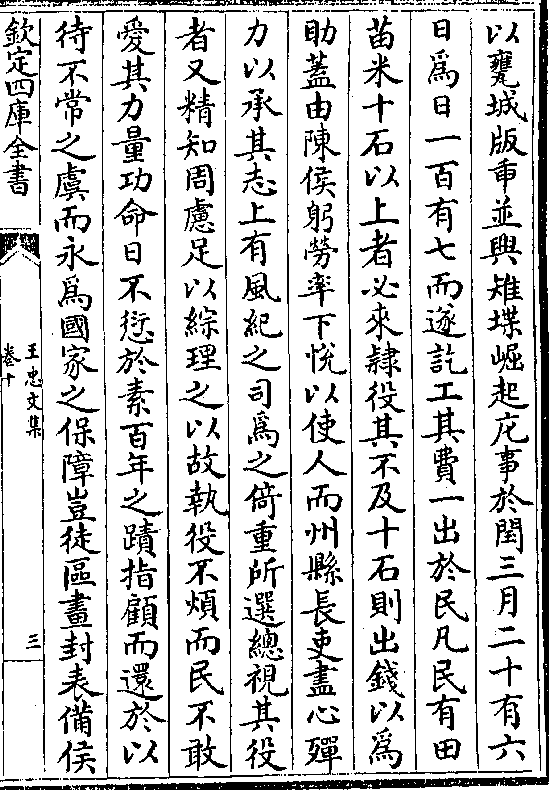 以甕城版臿並興雉堞崛起庀事於閏三月二十有六
日爲日一百有七而遂訖工其費一出於民凡民有田
苗米十石以上者必來隷役其不及十石則出錢以爲
助蓋由陳侯躬勞率下悅以使人而州縣長吏盡心殫
力以承其志上有風紀之司爲之倚重所選總視其役
者又精知周慮足以綜理之以故執役不煩而民不敢
愛其力量功命日不愆於素百年之蹟指顧而還於以
待不常之虞而永爲國家之保障豈徒區畫封表備侯
欽定四庫全書
王忠文集
卷十
三